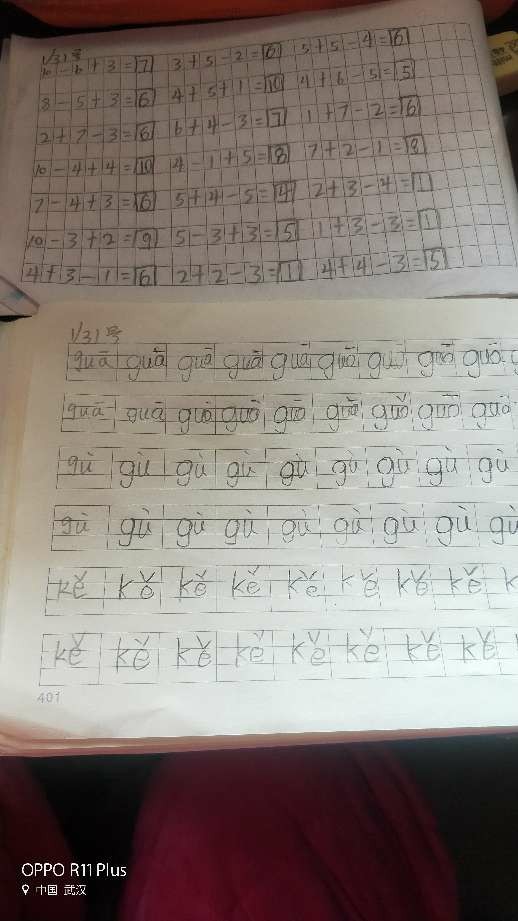 1/31号
10-6+3=7 3+5-2=6 5+5-4=6
8-5+3=6 4+5+1=10 4+6-5=5
2+7-3=6 6+4-3=7 1+7-2=6
10-4+4=10 4-1+5=8 7+2-1=8
7-4+3=6 5+4-5=4 2+3-4=1
10-3+2=9 5-3+3=5 1+3-3=1
4+3-1=6 2+2-3=1 4+4-3=5
1/31号
guā guā guā guā guā guā guā guā guā
guā guā guā guā guā guā guā guā guā
gù gù gù gù gù gù gù gù gù
gù gù gù gù gù gù gù gù gù
kě kě kě kě kě kě kě kě k
kě kě kě kě kě kě kě kě
401
OPPO R11 Plus
中国 武汉